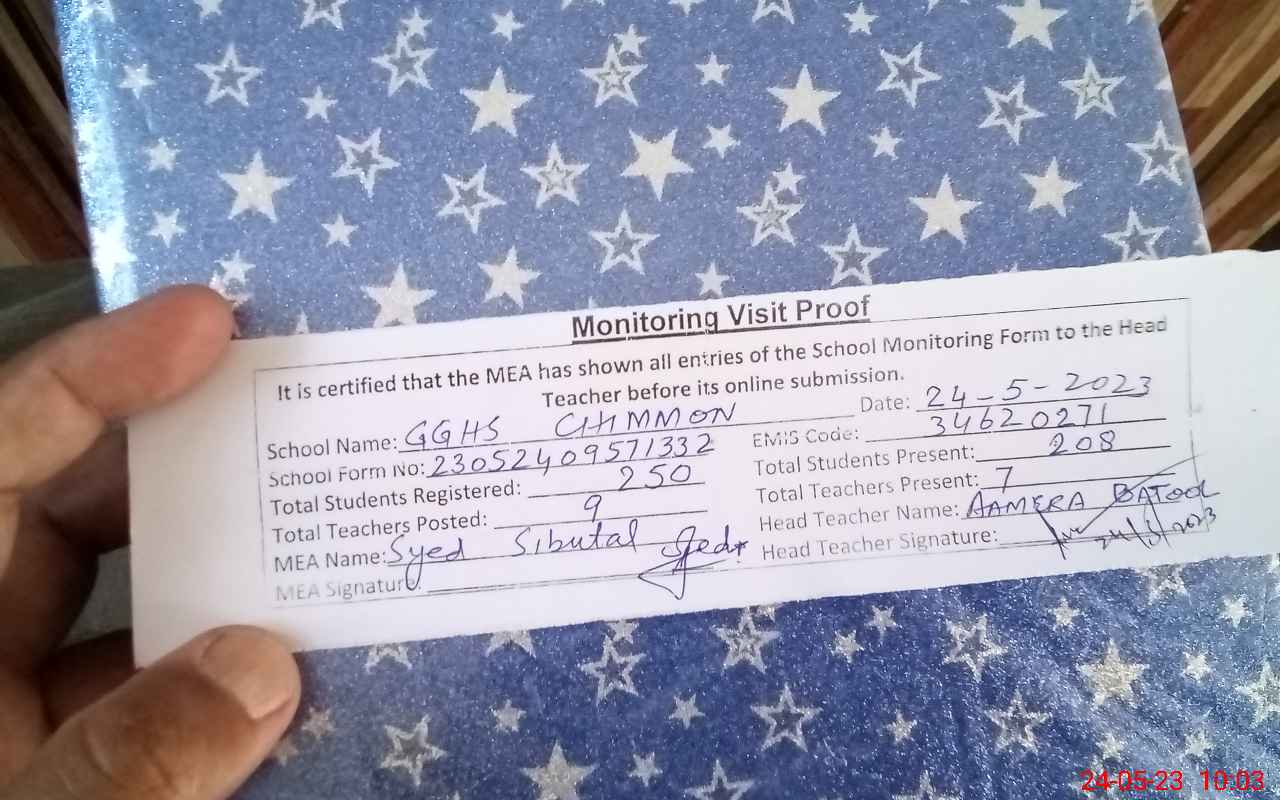 Monitoring Visit Proof
It is certified that the MEA has shown all entries of the School Monitoring Form to the Head
Teacher before its online submission.
School Name: GGHS CHMMON Date: 24-5-2023
School Form No: 23052409571332 EMIS Code: 34620271
Total Students Registered: 250 Total Students Present: 208
Total Teachers Posted: 9 Total Teachers Present: 7
MEA Name: Syed Sibutal Head Teacher Name: AAMERA BATOOL
MEA Signature: Head Teacher Signature: 24/5/2023
24-05-23 10:03